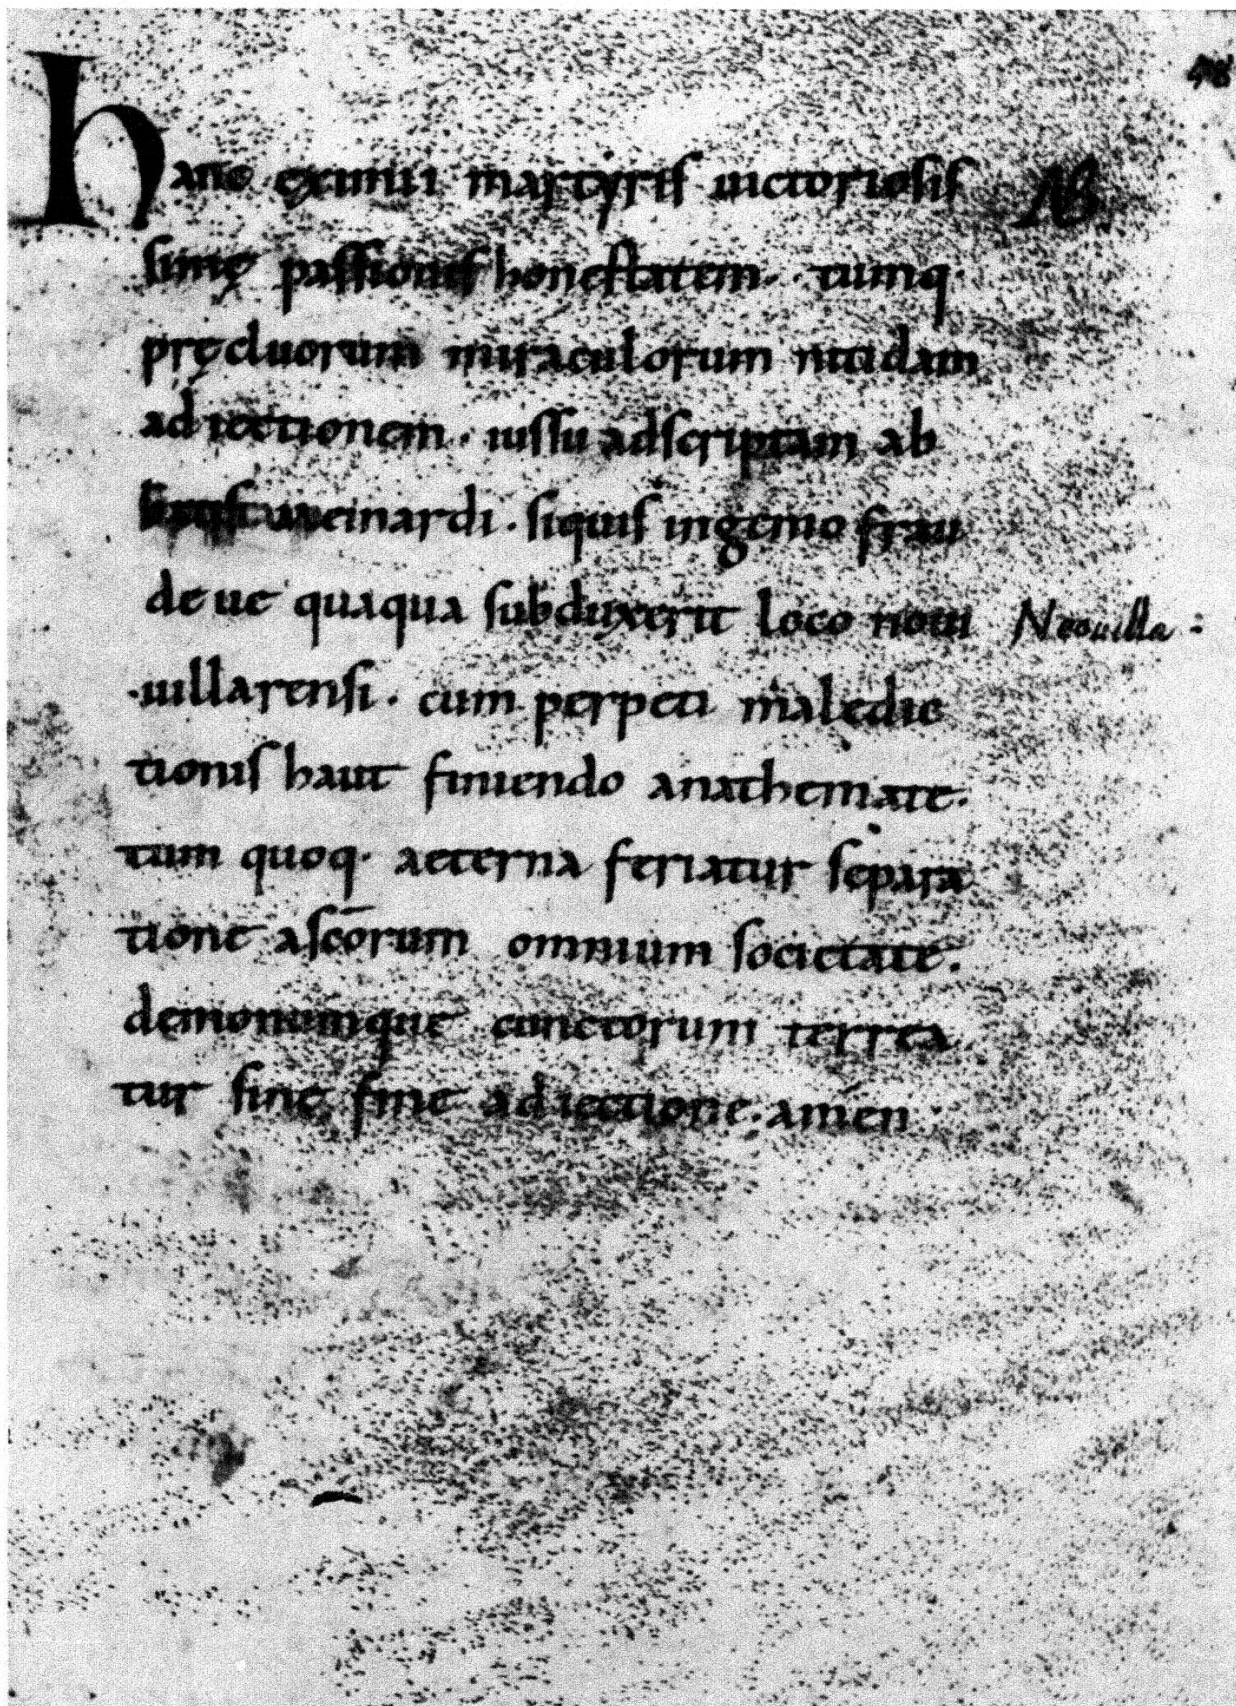 48
hanc eximii martyris uictoriosis NB
simę passionis honestatem · tumq·
pręcluorum miraculorum nitidam
adiectionem · iussu adscriptam ab
batis weinardi · siquis ingenio frau
de ue quaqua subduxerit loco noui Neouilla
·uillarensi · cum perpeti maledic
tionis haut finiendo anathemate·
tum quoq· aeterna feriatur separa
tione a scōrum omnium societate·
demonumque cunctorum terrea
tur sine fine adiectione · amen